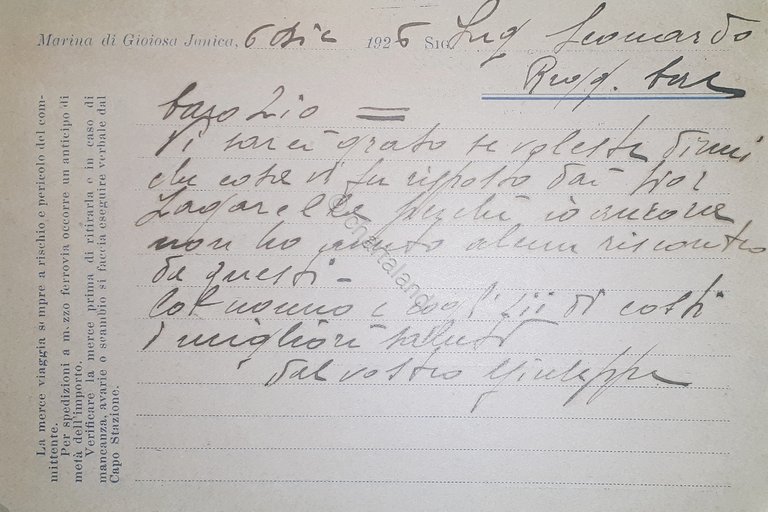 Marina di Gioiosa Jonica, 6 Dic 1926 Sig. Ing Leonardo
Regg. Cal
Caro Zio =
Vi sarei grato se voleste dirmi
che cosa vi fu risposto dai Sior
perché io ancora
non ho avuto alcun riscontro
da questi -
Col nonno e cogl'zii di costì
i migliori saluti
dal vostro Giuseppe
La merce viaggia sempre a rischio e pericolo del com-
mittente.
Per spedizioni a mezzo ferrovia occorre un anticipo di
metà dell'importo.
Verificare la merce prima di ritirarla e in caso di
mancanza, avarie o scambio si faccia eseguire verbale dal
Capo Stazione.